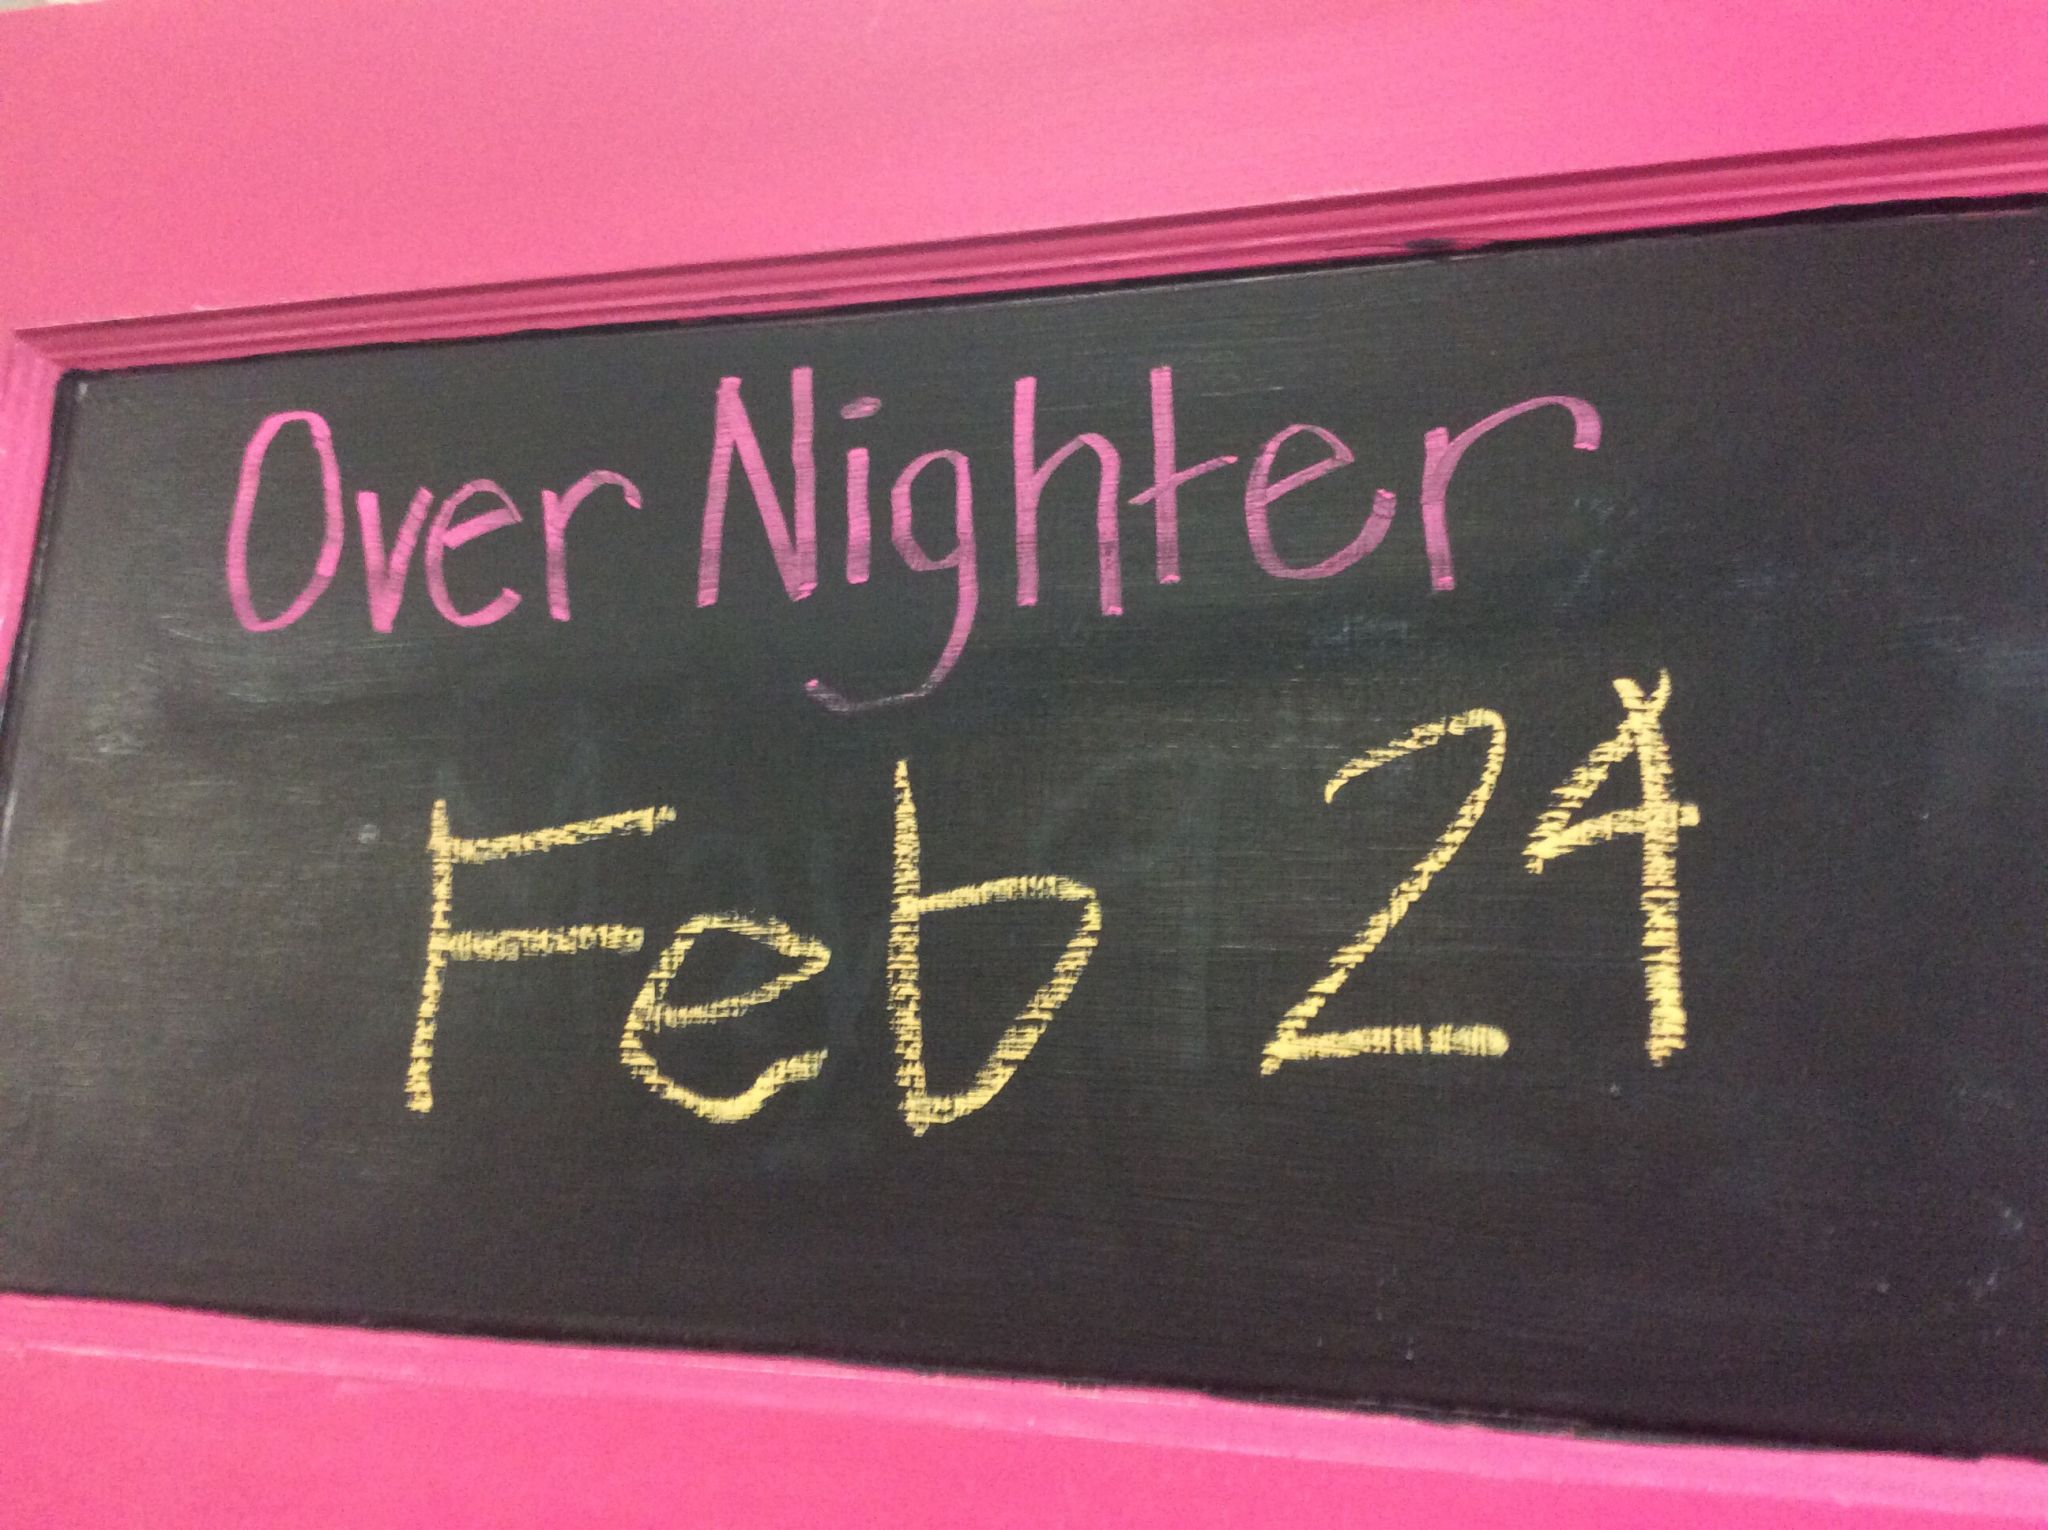 Over Nighter
Feb 24